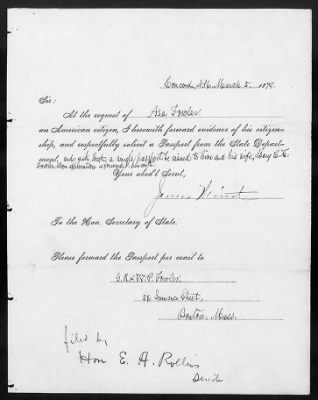 Concord, N.H. March 5. 1878.
Sir:
At the request of Asa Fowler
an American citizen, I herewith forward evidence of his citizen-
ship, and respectfully solicit a Passport from the State Depart-
ment, and ask that a single passport be issued to him and his wife, Mary C. K.
Fowler
Your obed't Serv't,
James
To the Hon. Secretary of State.
Please forward the Passport per mail to
G. R. & W. P. Fowler
Street,
Boston, Mass.
filed by
Hon E. H. Rollins
Senator